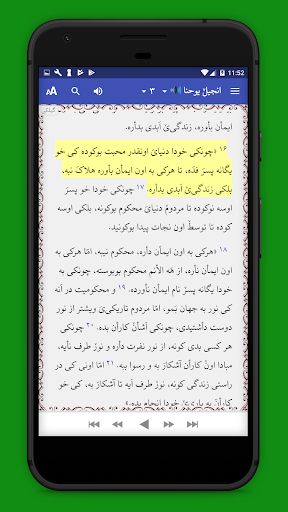 11:52
انجیلْ یوحنا ۳
ایمان بأوره، زندگیٰ أبدی بدأره.
۱۶ «چونکی خودا دنیایَ اونقدر محبت بوکوده کی خو
یگانه پسرَ فَده، تا هرکی به اون ایمأن بأوره هلاکَ نبه،
بلکی زندگیٰ أبدی بدأره. ۱۷ چونکی خودا خو پسرَ
اوسه نوکوده تا مردومْ دنیایَ محکوم بوکونه، بلکی اوسه
کوده تا توسطْ اون نجات پیدا بوکونید.
۱۸ «هرکی به اون ایمأن دأره، محکوم نیبه، امّا هرکی به
اون ایمأن نأره، از هَه الأنم محکوم بوبوسته، چونکی به
خودا یگانه پسرَ نام ایمأن نأورده. ۱۹ و محکومیت در أنه
کی نور به جهان بَمو، امّا مردوم تاریکیَ ویشتر از نور
دوست دأشتیدی، چونکی أشأنْ کارأن بده. ۲۰ چونکی
هر کسی بدی کونه، از نور نفرت دأره و نورْ طرف نأیه،
مبادا اونْ کارأن آشکارَ به و رسوا ببه. ۲۱ امّا اونی کی در
راستی زندگی کونه، نورْ طرف أیه تا آشکارَ به، کی خو
کارأنَ به یاریْ خودا انجام بده.»